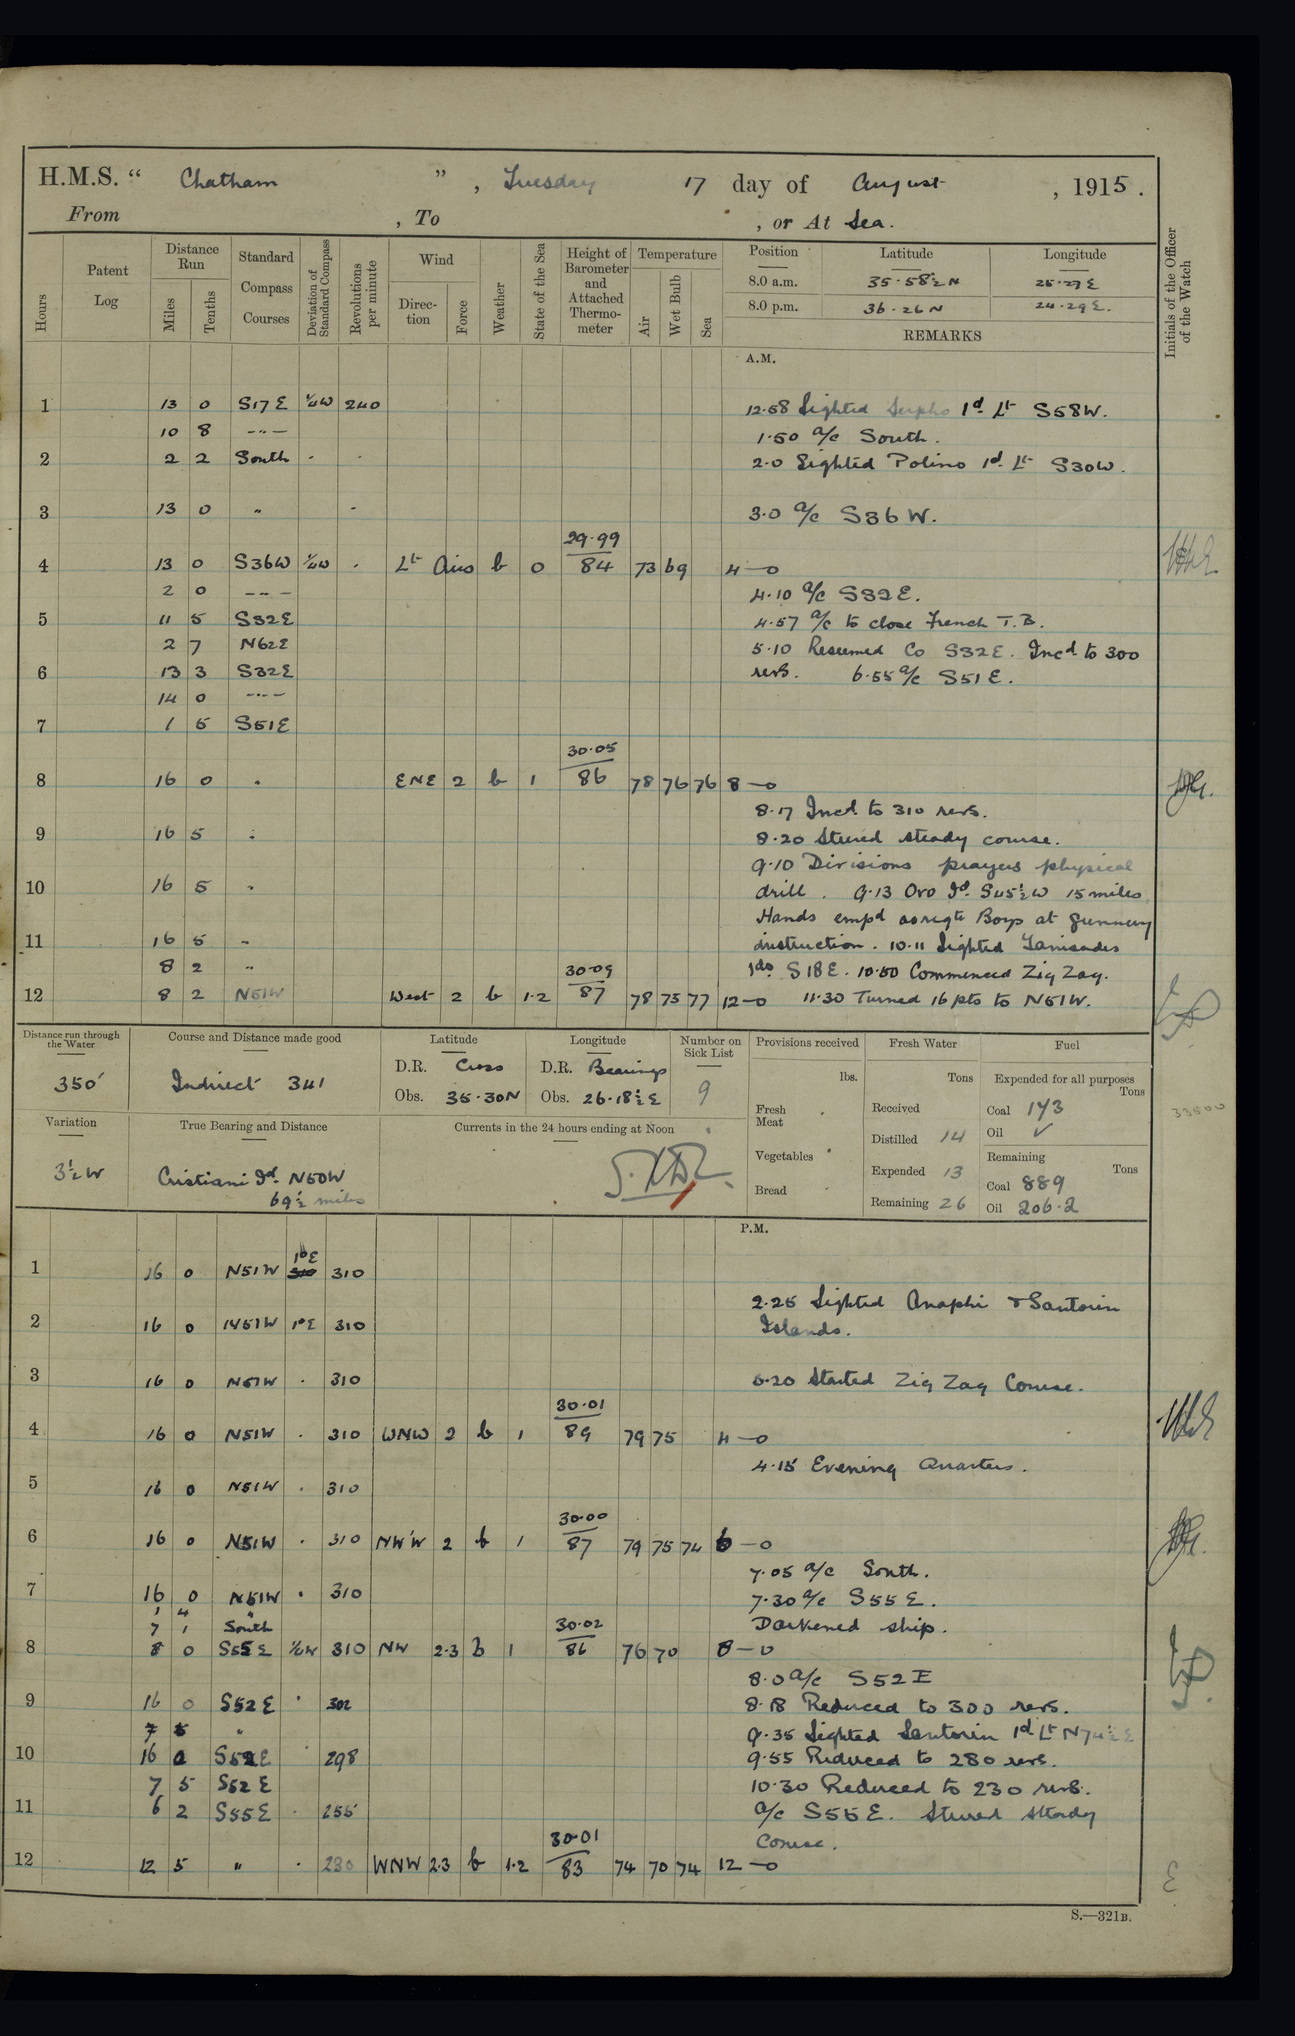 H.M.S. " Chatham " , Tuesday 17 day of August , 1915 .
From , To , or At Sea.
Hours
Patent Log
Distance Run
Miles
Tenths
Standard Compass Courses
Deviation of Standard Compass
Revolutions per minute
Wind
Direction
Force
Weather
State of the Sea
Height of Barometer and Attached Thermometer
Temperature
Air
Wet Bulb
Sea
Position Latitude Longitude
8.0 a.m. 35·58½N 25·27E
8.0 p.m. 36·26N 24·29E.
REMARKS
Initials of the Officer of the Watch
A.M.
1 13 0 S17E ¼W 240 12·58 Sighted 1d Lt S58W.
10 8 -"- 1·50 a/c South.
2 2 2 South 2·0 Sighted Polino 1d Lt S30W.
3 13 0 " 3·0 a/c S36W.
29·99
4 13 0 S36W ¼W Lt Airs b 0 84 73 69 4-0
2 0 -"- 4·10 a/c S32E.
5 11 5 S32E 4·57 a/c to close French T.B.
2 7 N62E 5·10 Resumed Co S32E. Incd to 300
6 13 3 S32E revs. 6·55 a/c S51E.
14 0 -"-
7 1 5 S51E
30·05
8 16 0 " ENE 2 b 1 86 78 76 76 8-0
8·17 Incd to 310 revs.
9 16 5 " 8·20 Steered steady course.
9·10 Divisions prayers physical
10 16 5 " drill. 9·13 Ovo Id. S45½W 15 miles
Hands empd as reqte Boys at gunnery
11 16 5 " instruction. 10·11 Sighted
8 2 " 30·09 Ids S18E. 10·50 Commenced Zig Zag.
12 8 2 N51W West 2 b 1·2 87 78 73 77 12-0 11·30 Turned 16 pts to N51W.
Distance run through the Water
350'
Course and Distance made good
Indirect 341
Latitude
D.R. Cross
Obs. 35·30N
Longitude
D.R. Bearings
Obs. 26·18½E
Number on Sick List
9
Provisions received
lbs.
Fresh Meat
Vegetables
Bread
Fresh Water
Tons
Received
Distilled 14
Expended 13
Remaining 26
Fuel
Expended for all purposes
Tons
Coal 143
Oil ✓
Remaining
Tons
Coal 889
Oil 206·2
33500
Variation
3½W
True Bearing and Distance
Cristiani Id. N50W
69½ miles
Currents in the 24 hours ending at Noon
P.M.
1 16 0 N51W 1°E 310
2·25 Sighted Anaphi & Santorin
2 16 0 N51W 1°E 310 Islands.
3 16 0 N51W · 310 3·20 Started Zig Zag Course.
30·01
4 16 0 N51W · 310 WNW 2 b 1 89 79 75 4-0
4·15 Evening Quarters.
5 16 0 N51W · 310
30·00
6 16 0 N51W · 310 NW'W 2 b 1 87 79 75 74 6-0
7·05 a/c South.
7 16 0 N51W · 310 7·30 a/c S55E.
1 4 "
7 1 South 30·02 Darkened ship.
8 8 0 S55E ½W 310 NW 2·3 b 1 86 76 70 8-0
8·0 a/c S52E
9 16 0 S52E · 302 8·18 Reduced to 300 revs.
7 5 " 9·35 Sighted Santorin 1d Lt N74½E
10 16 0 S52E 298 9·55 Reduced to 280 revs.
7 5 S52E 10·30 Reduced to 230 revs.
11 6 2 S55E · 255 a/c S55E. Steered steady
30·01 Course.
12 12 5 " · 230 WNW 2·3 b 1·2 83 74 70 74 12-0
S.—321B.